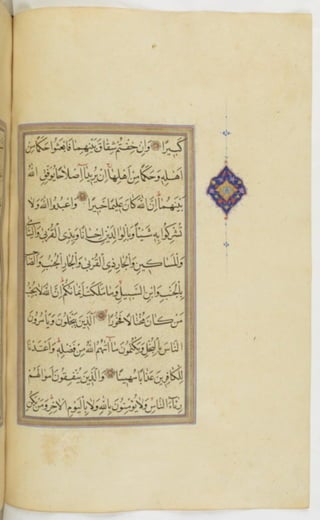 كبيرا وان خفتم شقاق بينهما فابعثوا حكما من
اهله وحكما من اهلها ان يريدا اصلاحا يوفق الله
بينهما ان الله كان عليما خبيرا واعبدوا الله ولا
تشركوا به شيئا وبالوالدين احسانا وبذى القربى واليتامى
والمساكين والجار ذى القربى والجار الجنب والصاحب
بالجنب وابن السبيل وما ملكت ايمانكم ان الله لا يحب
من كان مختالا فخورا الذين يبخلون ويامرون
الناس بالبخل ويكتمون ما آتيهم الله من فضله واعتدنا
للكافرين عذابا مهينا والذين ينفقون اموالهم
رئاء الناس ولا يؤمنون بالله ولا باليوم الاخر ومن يكن